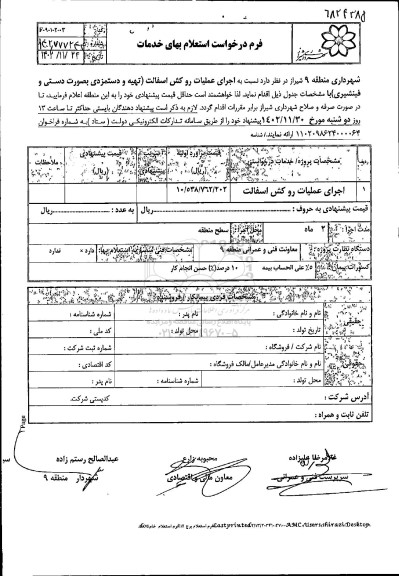 ۶۸۲۴۳۸۵
فرم درخواست استعلام بهای خدمات
۶۰۹۰۱۰۲۰۰۳
۱۴۰۲/۱۱/۲۴
شهرداری منطقه ۹ شیراز در نظر دارد نسبت به اجرای عملیات رو کش اسفالت (تهیه و دستمزدی بصورت دستی و
فینشیری) با مشخصات جدول ذیل اقدام نماید. لذا خواهشمند است حداقل قیمت پیشنهادی خود را به این منطقه اعلام فرمایید. تا
در صورت صرفه و صلاح شهرداری شیراز برابر مقررات اقدام گردد. لازم به ذکر است پیشنهاد دهندگان بایستی حداکثر تا ساعت ۱۳
روز دو شنبه مورخ ۱۴۰۲/۱۱/۳۰ پیشنهاد خود را از طریق سامانه تدارکات الکترونیکی دولت ( ستاد ) به شماره فراخوان
۱۱۰۲۰۹۸۶۲۴۰۰۰۰۶۴ ارائه نمایند.
ردیف مشخصات پروژه/ خدمات درخواستی قیمت برآورد اولیه (ریال) قیمت پیشنهادی (ریال) ملاحظات
۱ اجرای عملیات رو کش اسفالت ۱۰/۰۳۸/۷۶۲/۲۰۲
قیمت پیشنهادی به حروف : ریال به عدد : ریال
مدت اجرا : ۲ ماه محل اجرا : سطح منطقه
دستگاه نظارت پروژه : معاونت فنی و عمرانی منطقه ۹ دارد × ندارد
۵٪ علی الحساب بیمه ۱۰ درصد(٪) حسن انجام کار
مشخصات فردی پیمانکار / فروشنده
حقیقی نام و نام خانوادگی : نام پدر : شماره شناسنامه :
تاریخ تولد : محل تولد : کد ملی :
حقوقی نام شرکت / فروشگاه : شماره ثبت شرکت :
نام و نام خانوادگی مدیرعامل/مالک فروشگاه : کد اقتصادی :
محل تولد : شماره شناسنامه : نام پدر :
آدرس شرکت : کدپستی شرکت.
تلفن ثابت و همراه :
غلامرضا علیزاده محبوبه زارع عبدالصالح رستم زاده
سرپرست فنی و عمرانی معاون مالی و اقتصادی شهردار منطقه ۹